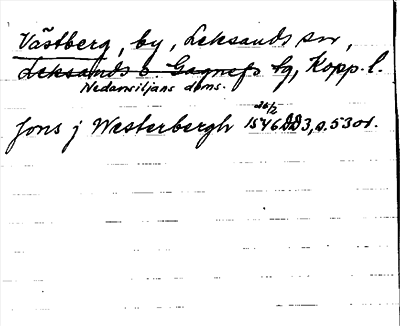 Västberg, by, Leksands sn,
Leksands o. Gagnefs tg, Kopp. l.
Nedansiljans doms.
26/2
Jons j Westerbergh 1546 DD3, s. 530